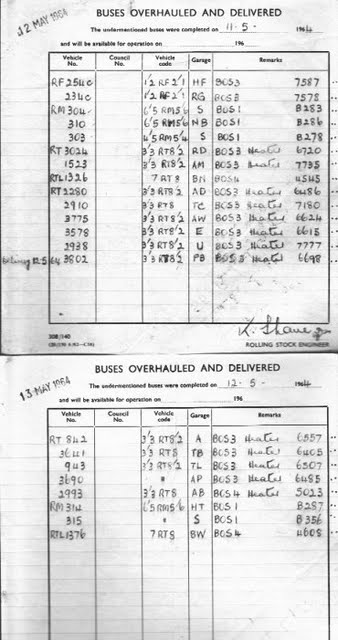 12 MAY 1964
BUSES OVERHAULED AND DELIVERED
The undermentioned buses were completed on 11-5- 1964
and will be available for operation on 196
Vehicle No. Council No. Vehicle code Garage Remarks
RF 254C 1'2 RF2'1 HF BOS3 7587
234C 1'2 RF2'1 RG BOS3 7578
RM 304 6'5 RM5'6 S BOS1 B283
310 6'5 RM5'6 NB BOS1 B286
303 4'5 RM5'4 S BOS1 B278
RT 3024 3'3 RT8'2 RD BOS3 Heater 6720
1523 3'3 RT8'2 AM BOS3 Heater 7735
RTL1326 7 RT8 BN BOS4 4545
RT 2280 3'3 RT8'2 AD BOS3 Heater 6486
2910 3'3 RT8 TC BOS3 Heater 7180
3775 3'3 RT8'2 AW BOS3 Heater 6624
3578 3'3 RT8'2 E BOS3 Heater 6615
2938 3'3 RT8'2 U BOS3 Heater 7777
12.5.64 3802 3'3 RT8'2 PB BOS3 Heater 6698
ROLLING STOCK ENGINEER
13 MAY 1964
BUSES OVERHAULED AND DELIVERED
The undermentioned buses were completed on 12-5- 1964
and will be available for operation on 196
Vehicle No. Council No. Vehicle code Garage Remarks
RT 842 3'3 RT8'2 A BOS3 Heater 6557
3641 3'3 RT8 TB BOS3 Heater 6405
943 3'3 RT8'2 TL BOS3 Heater 6507
3690 " AP BOS3 Heater 6485
2993 3'3 RT8 AB BOS4 Heater 5023
RM 314 6'5 RM5'6 HT BOS1 B287
315 " S BOS1 B356
RTL1376 7 RT8 BW BOS4 4608